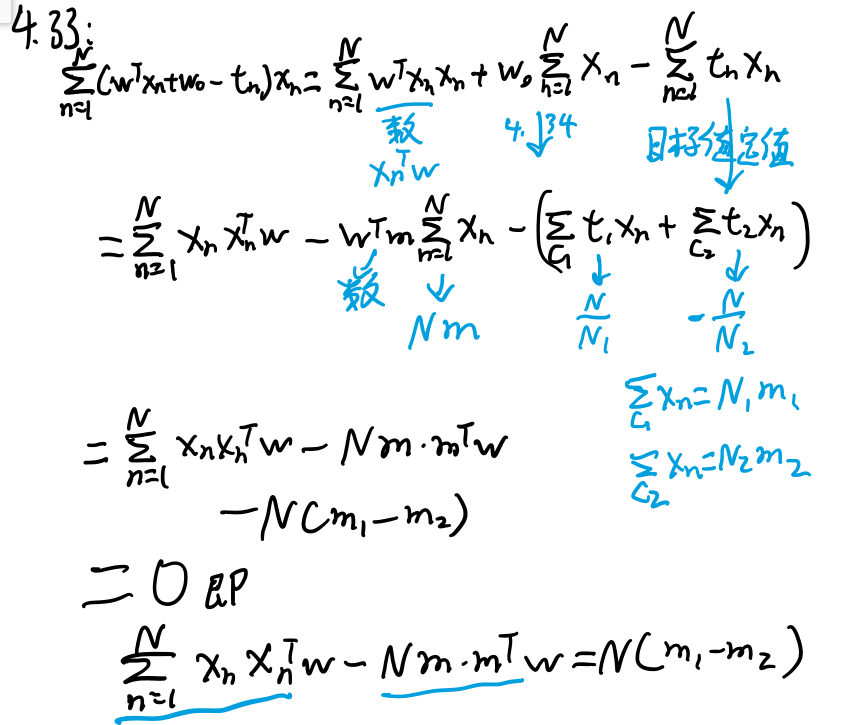 4.33:
\sum_{n=1}^{N} (w^T x_n + w_0 - t_n) x_n = \sum_{n=1}^{N} w^T x_n x_n + w_0 \sum_{n=1}^{N} x_n - \sum_{n=1}^{N} t_n x_n
数 4.34 目标值定值
x_n^T w
= \sum_{n=1}^{N} x_n x_n^T w - w^T m \sum_{n=1}^{N} x_n - ( \sum_{C_1} t_1 x_n + \sum_{C_2} t_2 x_n )
数 N m \frac{N}{N_1} - \frac{N}{N_2}
\sum_{C_1} x_n = N_1 m_1
= \sum_{n=1}^{N} x_n x_n^T w - N m \cdot m^T w
\sum_{C_2} x_n = N_2 m_2
- N (m_1 - m_2)
= 0 即
\sum_{n=1}^{N} x_n x_n^T w - N m \cdot m^T w = N (m_1 - m_2)